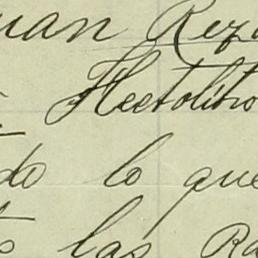 uan Rez
Hectolitro
do lo que
las Ra